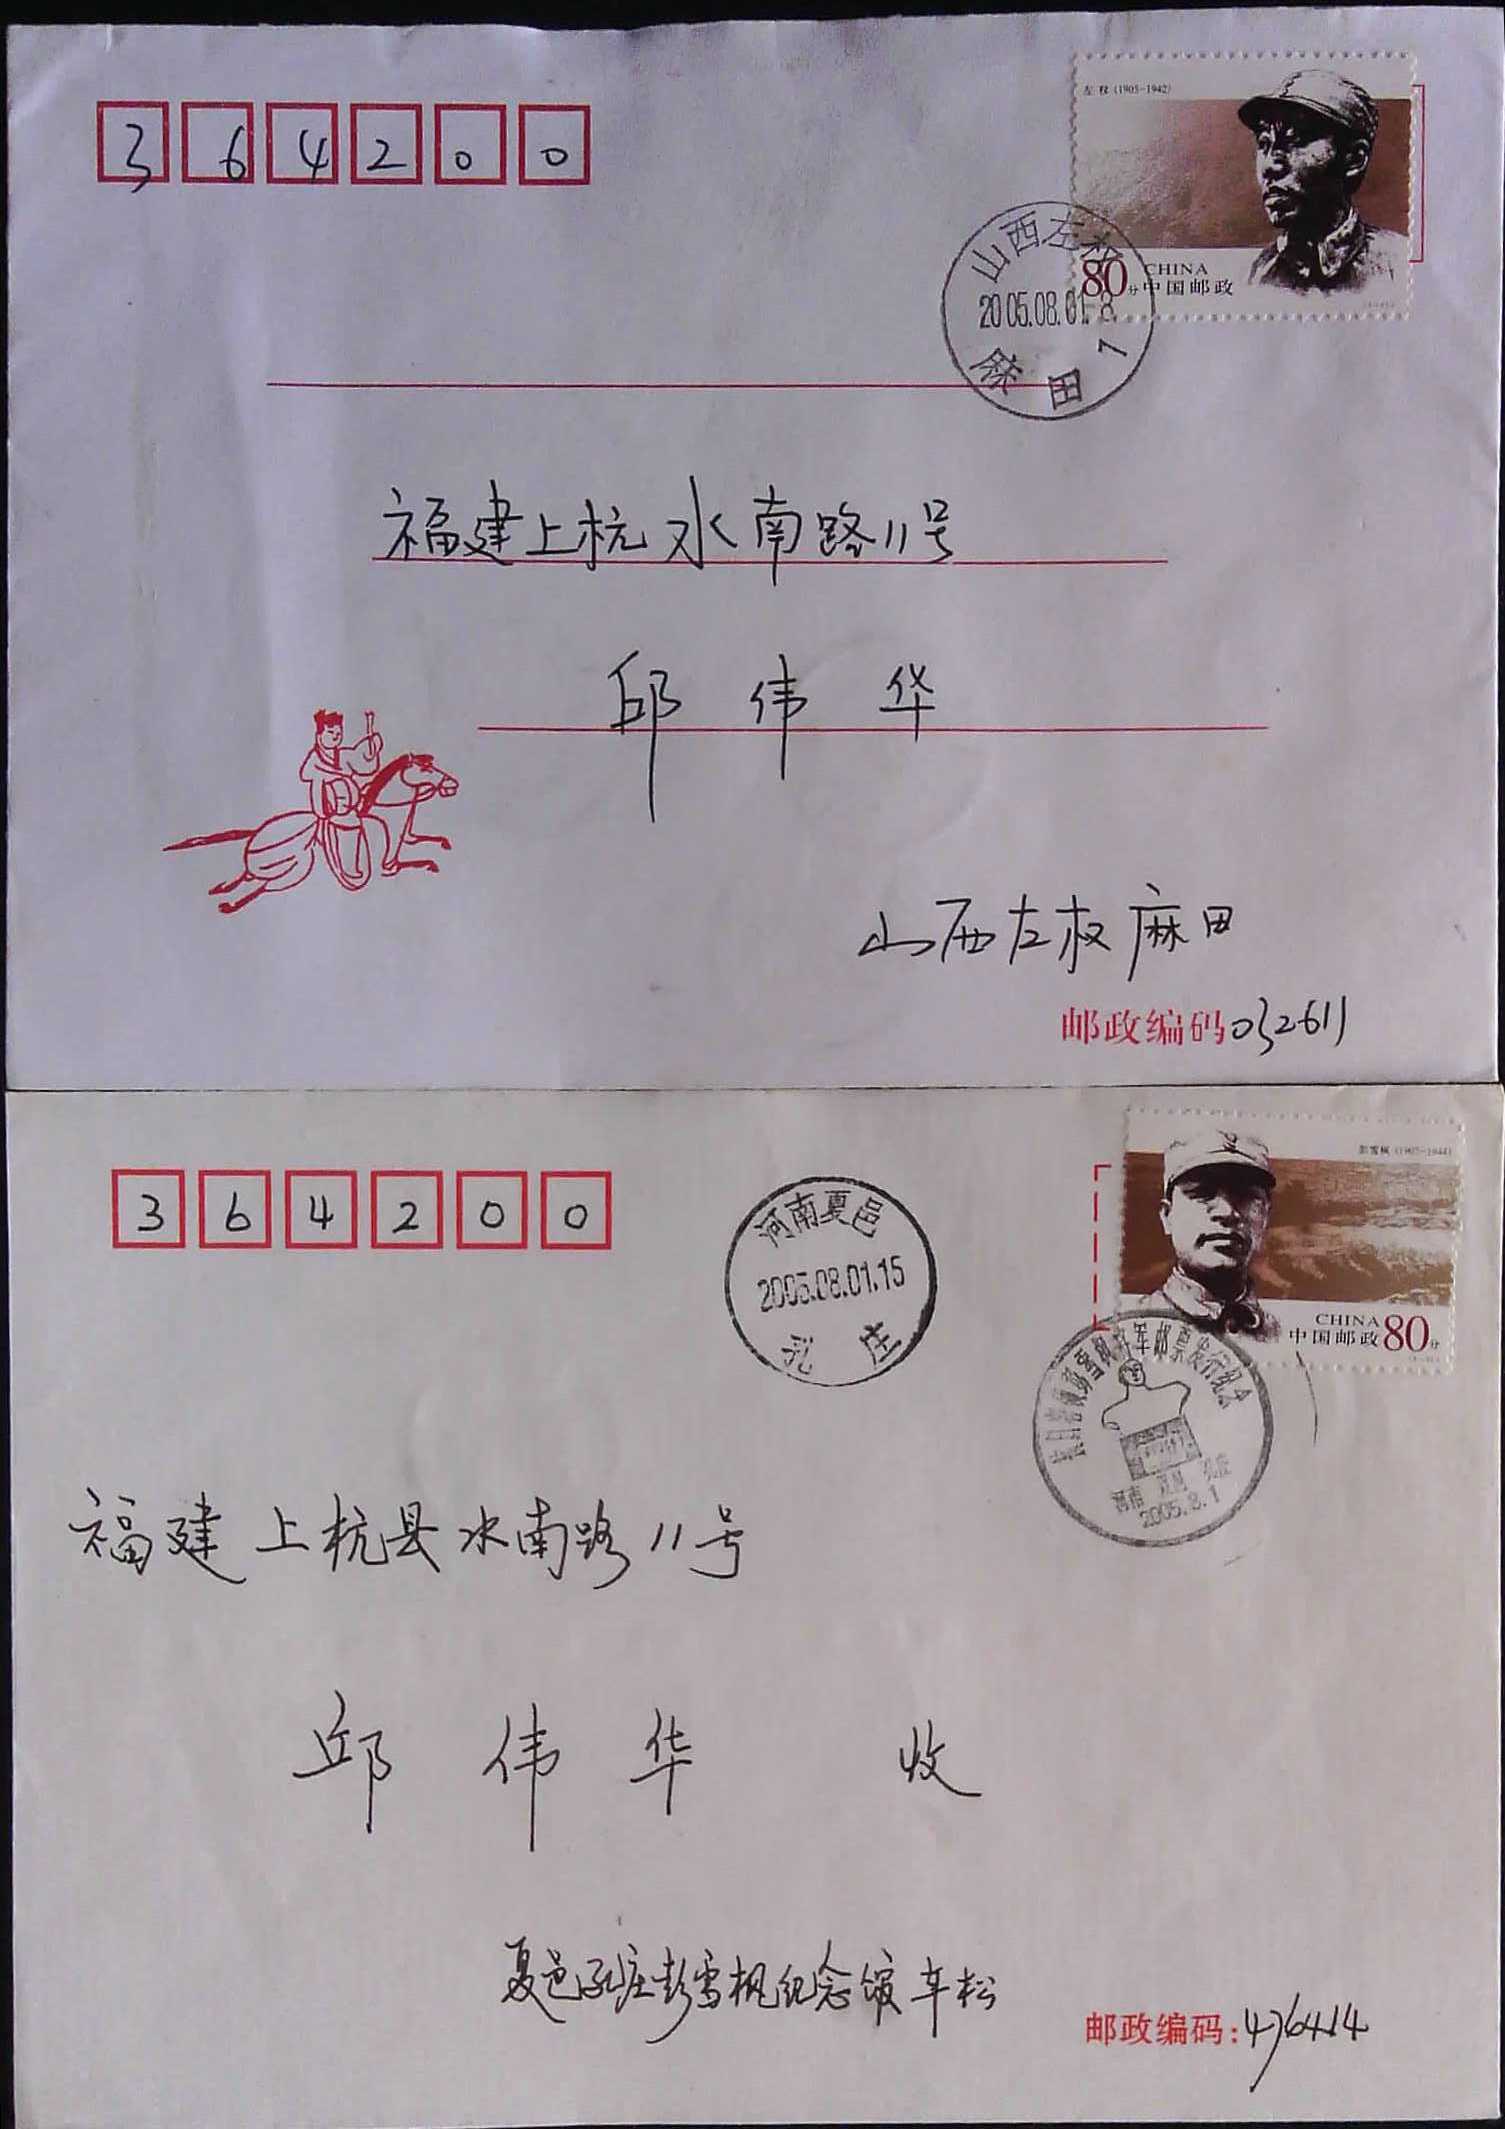 左权(1905-1942)
364200
山西左权
80分
CHINA
中国邮政
2005.08.01.8
麻田
1
福建上杭水南路11号
邱伟华
山西左权麻田
邮政编码032611
彭雪枫(1907-1944)
364200
河南夏邑
2005.08.01.15
孔庄
CHINA
中国邮政80分
彭雪枫将军邮票发行纪念
2005.8.1
福建上杭县水南路11号
邱伟华 收
夏邑孔庄彭雪枫纪念馆 车松
邮政编码:476414